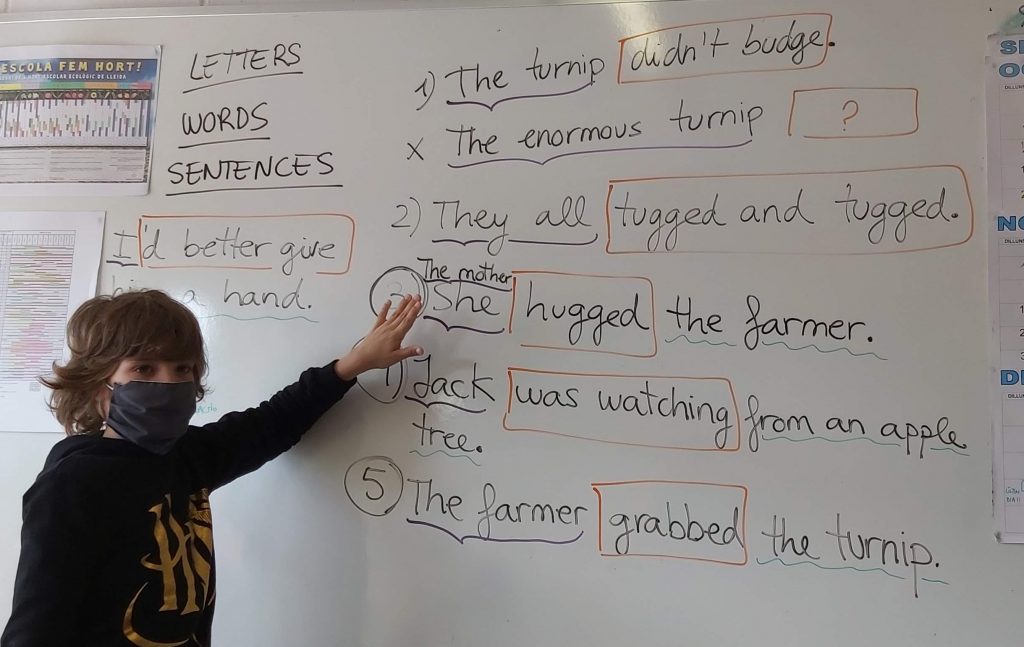 ESCOLA FEM HORT!
LETTERS
WORDS
SENTENCES
I'd better give
a hand.
1) The turnip didn't budge.
x The enormous turnip ?
2) They all tugged and tugged.
The mother
She hugged the farmer.
Jack was watching from an apple
tree.
5 The farmer grabbed the turnip.